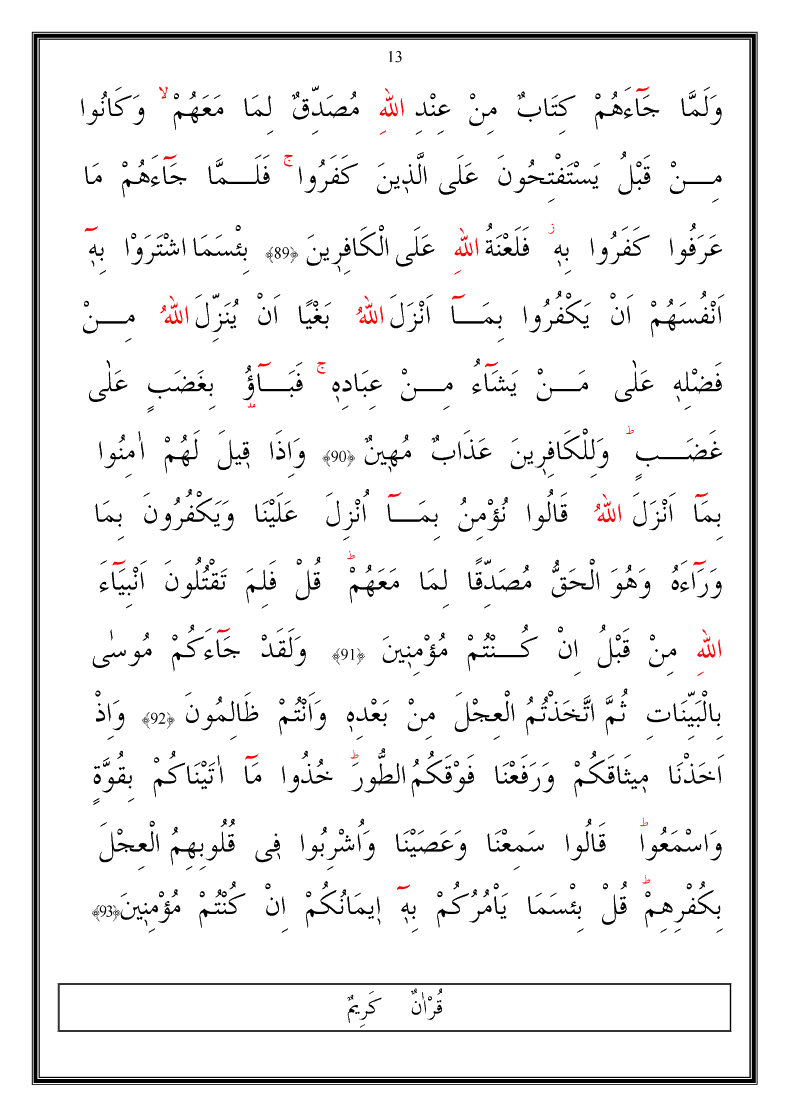 13
وَلَمَّا جَٓاءَهُمْ كِتَابٌ مِنْ عِنْدِ اللّٰهِ مُصَدِّقٌ لِمَا مَعَهُمْۙ وَكَانُوا
مِـــنْ قَبْلُ يَسْتَفْتِحُونَ عَلَى الَّذ۪ينَ كَفَرُواۚ فَلَـــمَّا جَٓاءَهُمْ مَا
عَرَفُوا كَفَرُوا بِه۪ۘ فَلَعْنَةُ اللّٰهِ عَلَى الْكَافِر۪ينَ ﴿89﴾ بِئْسَمَا اشْتَرَوْا بِه۪ٓ
اَنْفُسَهُمْ اَنْ يَكْفُرُوا بِمَـــٓا اَنْزَلَ اللّٰهُ بَغْيًا اَنْ يُنَزِّلَ اللّٰهُ مِـــنْ
فَضْلِه۪ عَلٰى مَـــنْ يَشَٓاءُ مِـــنْ عِبَادِه۪ۚ فَبَـــٓاؤُ۫ بِغَضَبٍ عَلٰى
غَضَـــبٍۜ وَلِلْكَافِر۪ينَ عَذَابٌ مُه۪ينٌ ﴿90﴾ وَاِذَا ق۪يلَ لَهُمْ اٰمِنُوا
بِمَٓا اَنْزَلَ اللّٰهُ قَالُوا نُؤْمِنُ بِمَـــٓا اُنْزِلَ عَلَيْنَا وَيَكْفُرُونَ بِمَا
وَرَٓاءَهُ وَهُوَ الْحَقُّ مُصَدِّقًا لِمَا مَعَهُمْۜ قُلْ فَلِمَ تَقْتُلُونَ اَنْبِيَٓاءَ
اللّٰهِ مِنْ قَبْلُ اِنْ كُـــنْتُمْ مُؤْمِن۪ينَ ﴿91﴾ وَلَقَدْ جَٓاءَكُمْ مُوسٰى
بِالْبَيِّنَاتِ ثُمَّ اتَّخَذْتُمُ الْعِجْلَ مِنْ بَعْدِه۪ وَاَنْتُمْ ظَالِمُونَ ﴿92﴾ وَاِذْ
اَخَذْنَا م۪يثَاقَكُمْ وَرَفَعْنَا فَوْقَكُمُ الطُّورَۜ خُذُوا مَٓا اٰتَيْنَاكُمْ بِقُوَّةٍ
وَاسْمَعُواۜ قَالُوا سَمِعْنَا وَعَصَيْنَا وَاُشْرِبُوا ف۪ى قُلُوبِهِمُ الْعِجْلَ
بِكُفْرِهِمْۜ قُلْ بِئْسَمَا يَاْمُرُكُمْ بِه۪ٓ ا۪يمَانُكُمْ اِنْ كُنْتُمْ مُؤْمِن۪ينَ﴿93﴾
قُرْاٰنٌ كَرِيمٌ